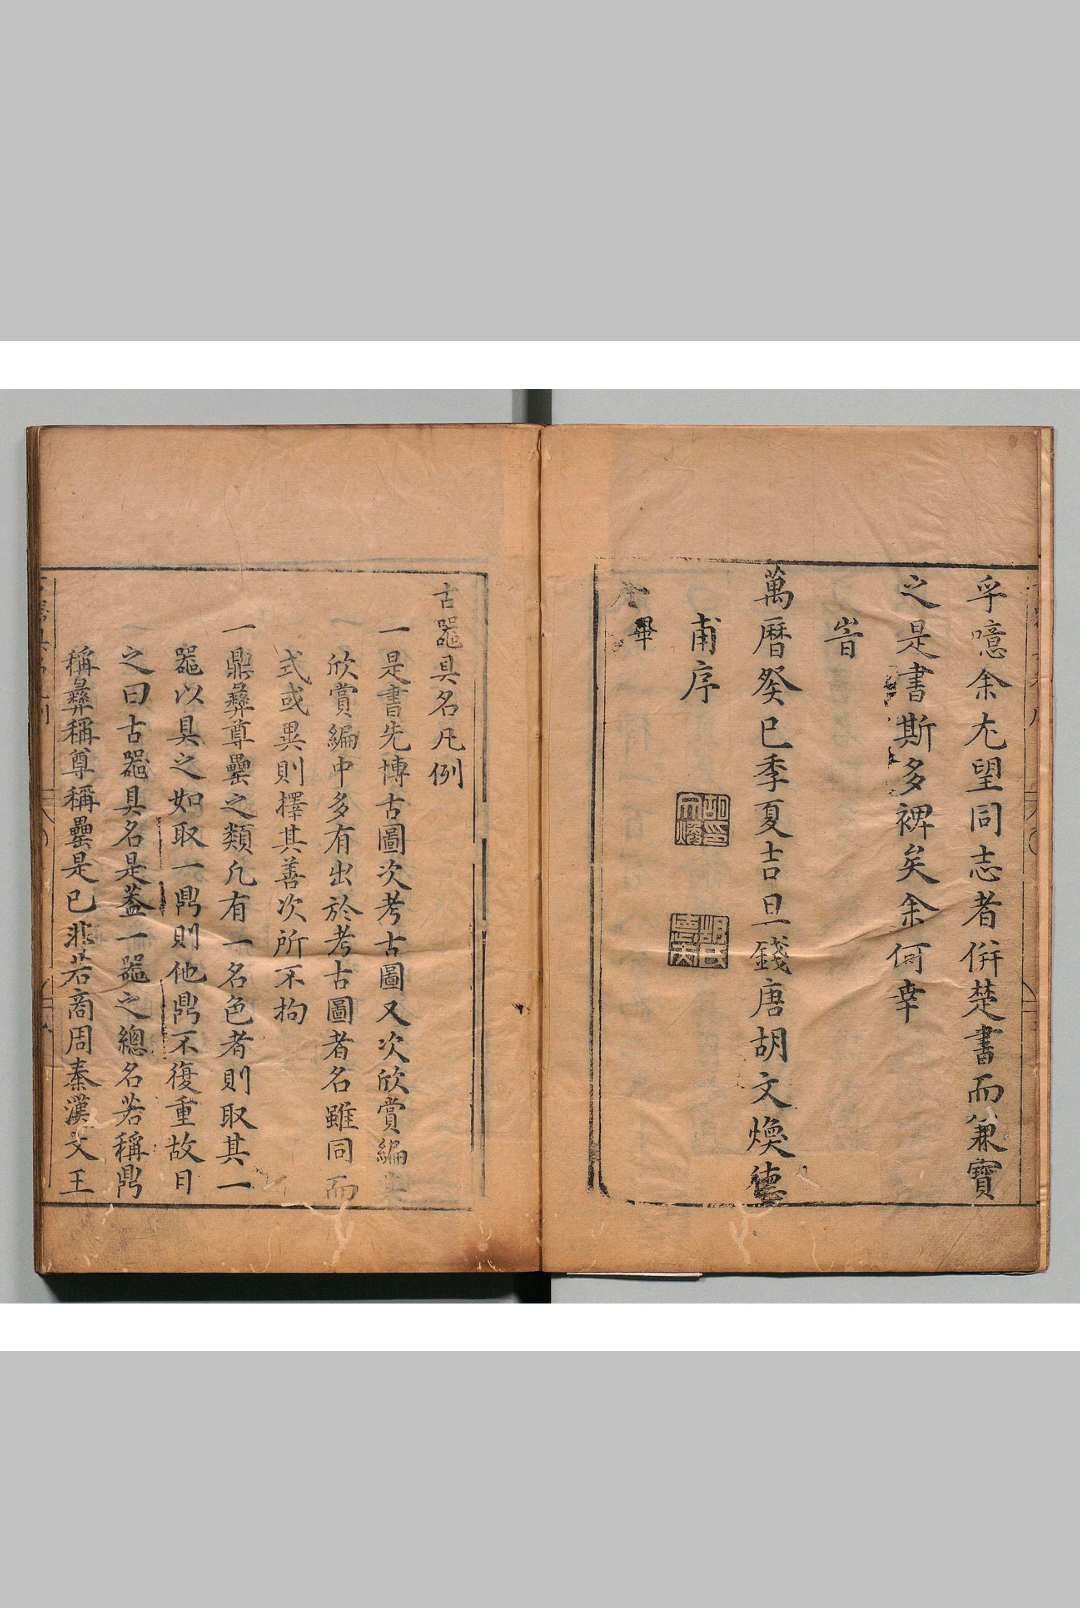 孚噫余尤望同志者併楚書而兼寶
之是書斯多裨矣余何幸
旹
萬曆癸巳季夏吉旦錢唐胡文煥德
甫序
畢
古器具名凡例
一是書先博古圖次考古圖又次欣賞編
欣賞編中多有出於考古圖者名雖同而
式或異則擇其善次所不拘
一鼎彝尊罍之類凡有一名色者則取其一
器以具之如取一鼎則他鼎不復重故目
之曰古器具名是葢一器之總名若稱鼎
稱彝稱尊稱罍是已非若商周秦漢文王